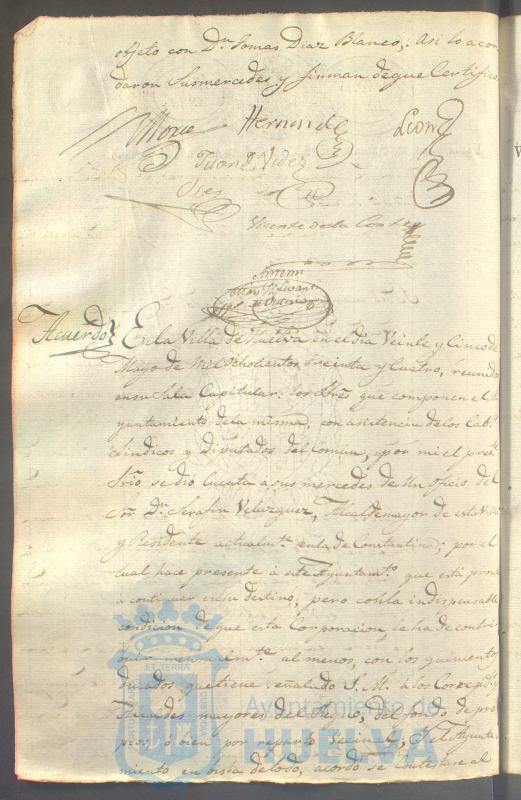 objeto con Dn. Tomas Diaz Blanco; Asi lo acor
daron Susmercedes y firman deque Certifico
Hernandz
Leon
Juan Videz
Vicente dela Corte
Antemi
Acuerdo
En la Villa de Huelva en el dia Veinte y Cinco de
Mayo de Mil Ochocientos treinta y Cuatro, reunido
en su Sala Capitular los Sres que componen el A
yuntamiento dela misma, con asistencia delos Cab.s
Sindicos y Diputados del comun, por mi el pres.te
Srio se dio Cuenta a sus mercedes de Un oficio del
Sor Dn. Serafin Velazquez, Alcaldemayor de esta Villa
y Residente actualm.te en la de Constantina; por el
cual hace presente á este Ayuntam.to que está pron
á continuar en su destino, pero con la indispensable
condicion de que esta Corporacion, le ha de contri
buir mensualm.te al menos, con los quinientos
ducados que tiene señalado S. M. á los Corregid.s y
Alcaldes mayores del Reyno, del fondo de pro
pios, o bien por reparto vecinal; Y el Ayunta
miento en vista de todo, acordó se Contestase al
ET TERRA
Ayuntamiento de
HUELVA